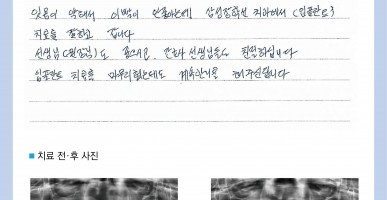 잇몸이 약해서 이빨이 안좋아는데 삼성 치과에서 (임플란트)
치료를 잘하고 갑니다
선생님(원장님)도 좋으시고 간호사 선생님들도 친절하십니다
임플란트 치료를 마무리 했는데도 계속관리를 해주신답니다
■ 치료 전·후 사진